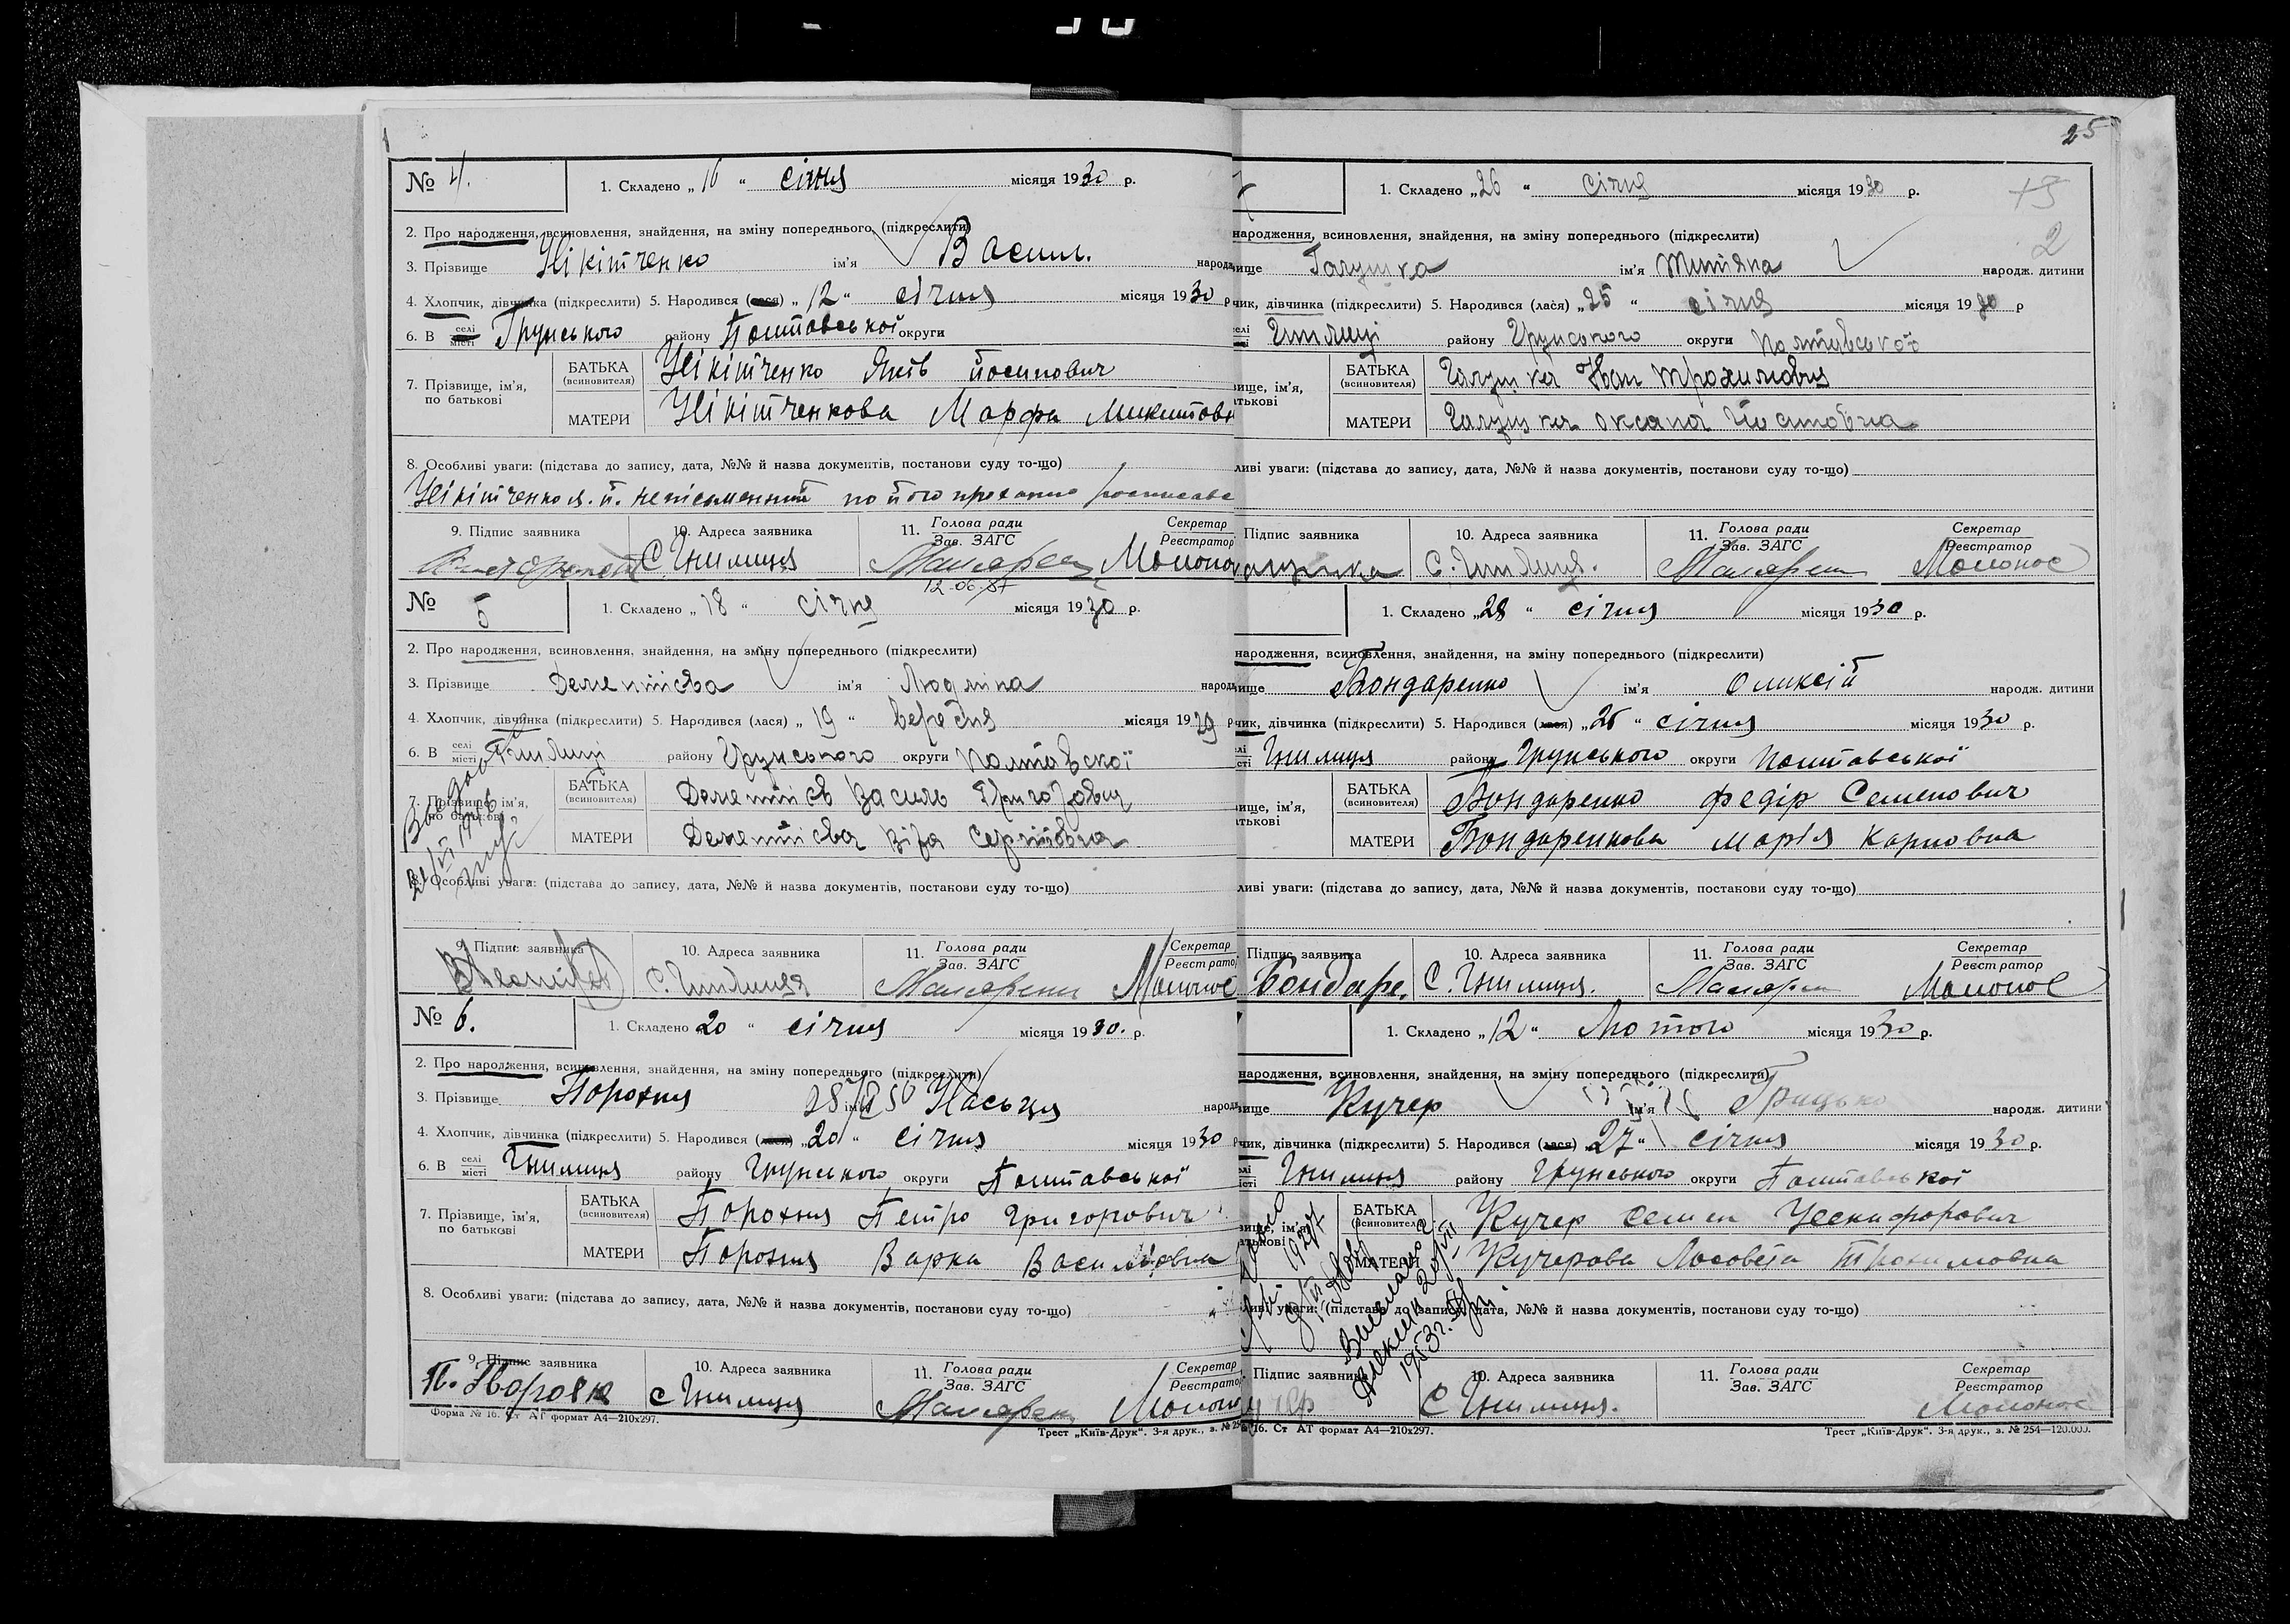 25
№ 4.
1. Складено „ 16 “ січня місяця 1930 р.
2. Про народження, всиновлення, знайдення, на зміну попереднього (підкреслити)
3. Прізвище Нікітченко ім’я Васил. народж
4. Хлопчик, дівчинка (підкреслити) 5. Народився (лася) „ 12 “ січня місяця 1930 р
6. В селі місті Грунського району Полтавської округи
7. Прізвище, ім’я, по батькові
БАТЬКА (всиновителя) Нікітченко Яків Йосипович
МАТЕРИ Нікітченкова Марфа Микитовн
8. Особливі уваги: (підстава до запису, дата, №№ й назва документів, постанови суду то-що)
Нікітченко Я. Й. неписьменний по його проханню росписавс
9. Підпис заявника 10. Адреса заявника 11. Голова ради Зав. ЗАГС Секретар Реєстратор
С. Гнилиця
12-06-87
№ 5
1. Складено „ 18 “ січня місяця 1930 р.
2. Про народження, всиновлення, знайдення, на зміну попереднього (підкреслити)
3. Прізвище Дементієва ім’я Людміна народж
4. Хлопчик, дівчинка (підкреслити) 5. Народився (лася) „ 19 “ вересня місяця 1929 р
6. В селі місті Гнилиці району Грунського округи Полтавскої
7. Прізвище, ім’я, по батькові
БАТЬКА (всиновителя) Дементієв Василь Григорович
МАТЕРИ Дементієва Віра Сергіївна
8. Особливі уваги: (підстава до запису, дата, №№ й назва документів, постанови суду то-що)
9. Підпис заявника 10. Адреса заявника 11. Голова ради Зав. ЗАГС Секретар Реєстратор
С. Гнилиця
№ 6.
1. Складено 20 “ січня місяця 1930. р.
2. Про народження, всиновлення, знайдення, на зміну попереднього (підкреслити)
3. Прізвище Порохня ім’я Наська народж
4. Хлопчик, дівчинка (підкреслити) 5. Народився (лася) „ 20 “ січня місяця 1930 р
6. В селі місті Гнилиця району Грунського округи Полтавської
7. Прізвище, ім’я, по батькові
БАТЬКА (всиновителя) Порохня Петро Григорович
МАТЕРИ Порохня Варка Василівна
8. Особливі уваги: (підстава до запису, дата, №№ й назва документів, постанови суду то-що)
9. Підпис заявника 10. Адреса заявника 11. Голова ради Зав. ЗАГС Секретар Реєстратор
с Гнилиця
Форма № 16. Ст АТ формат А4—210х297.
Трест „Київ-Друк“. 3-я друк., з. № 25
1. Складено „26 “ січня місяця 1930 р.
2
народження, всиновлення, знайдення, на зміну попереднього (підкреслити)
вище Галушка ім’я Титяна народж. дитини
чик, дівчинка (підкреслити) 5. Народився (лася) „25 “ січня місяця 1930 р
Гнилиці району Грунського округи Полтавської
вище, ім’я, атькові
БАТЬКА (всиновителя) Галушка Іван Трохимович
МАТЕРИ Галушка Оксана
ливі уваги: (підстава до запису, дата, №№ й назва документів, постанови суду то-що)
Підпис заявника 10. Адреса заявника 11. Голова ради Зав. ЗАГС Секретар Реєстратор
С. Гнилиця.
1. Складено „28 “ січня місяця 1930 р.
народження, всиновлення, знайдення, на зміну попереднього (підкреслити)
вище Бондаренко ім’я Оликсій народж. дитини
чик, дівчинка (підкреслити) 5. Народився (лася) „25 “ січня місяця 1930 р.
Гнилиця району Грунського округи Полтавської
вище, ім’я, атькові
БАТЬКА (всиновителя) Бондаренко Федір Семенович
МАТЕРИ Бондаренкова Марія Карповна
ливі уваги: (підстава до запису, дата, №№ й назва документів, постанови суду то-що)
Підпис заявника 10. Адреса заявника 11. Голова ради Зав. ЗАГС Секретар Реєстратор
Бондаре. С. Гнилиця.
1. Складено „ 12 “ Лютого місяця 1930 р.
народження, всиновлення, знайдення, на зміну попереднього (підкреслити)
вище Кучер ім’я Грицько народж. дитини
чик, дівчинка (підкреслити) 5. Народився (лася) 27 “ січня місяця 1930 р.
Гнилиця району Грунського округи Полтавської
вище, ім’я, атькові
БАТЬКА (всиновителя) Кучер Семен
МАТЕРИ Кучерова Трохимовна
ливі уваги: (підстава до запису, дата, №№ й назва документів, постанови суду то-що)
1953 г.
Підпис заявника 10. Адреса заявника 11. Голова ради Зав. ЗАГС Секретар Реєстратор
С Гнилиця.
16. Ст АТ формат А4—210х297.
Трест „Київ-Друк“. 3-я друк., з. № 254—120.000.